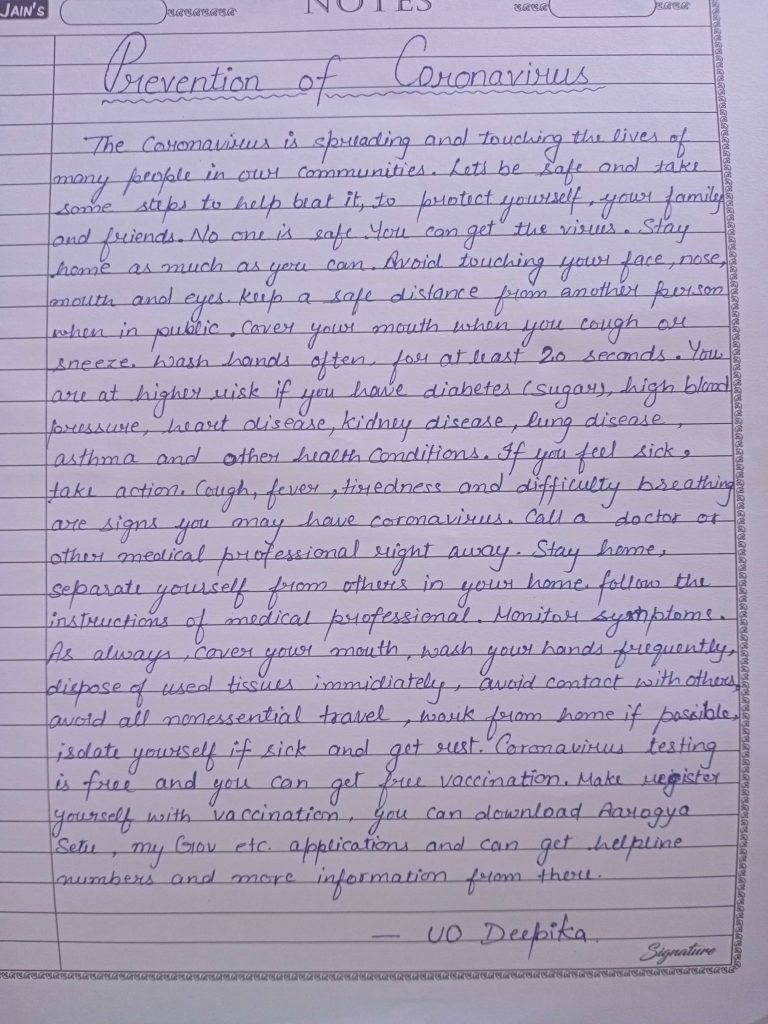 JAIN'S
NOTES
Prevention of Coronavirus
The Coronavirus is spreading and touching the lives of
many people in our communities. Lets be safe and take
some steps to help beat it, to protect yourself, your family
and friends. No one is safe. You can get the virus. Stay
home as much as you can. Avoid touching your face, nose,
mouth and eyes. Keep a safe distance from another person
when in public. Cover your mouth when you cough or
sneeze. Wash hands often, for at least 20 seconds. You
are at higher risk if you have diabetes (sugar), high blood
pressure, heart disease, kidney disease, lung disease,
asthma and other health conditions. If you feel sick,
take action. Cough, fever, tiredness and difficulty breathing
are signs you may have coronavirus. Call a doctor or
other medical professional right away. Stay home,
separate yourself from others in your home. follow the
instructions of medical professional. Monitor symptoms.
As always, cover your mouth, wash your hands frequently,
dispose of used tissues immidiately, avoid contact with others,
avoid all nonessential travel, work from home if possible,
isolate yourself if sick and get rest. Coronavirus testing
is free and you can get free vaccination. Make register
yourself with vaccination, you can download Aarogya
Setu, my Gov etc. applications and can get helpline
numbers and more information from there.
— UO Deepika
Signature